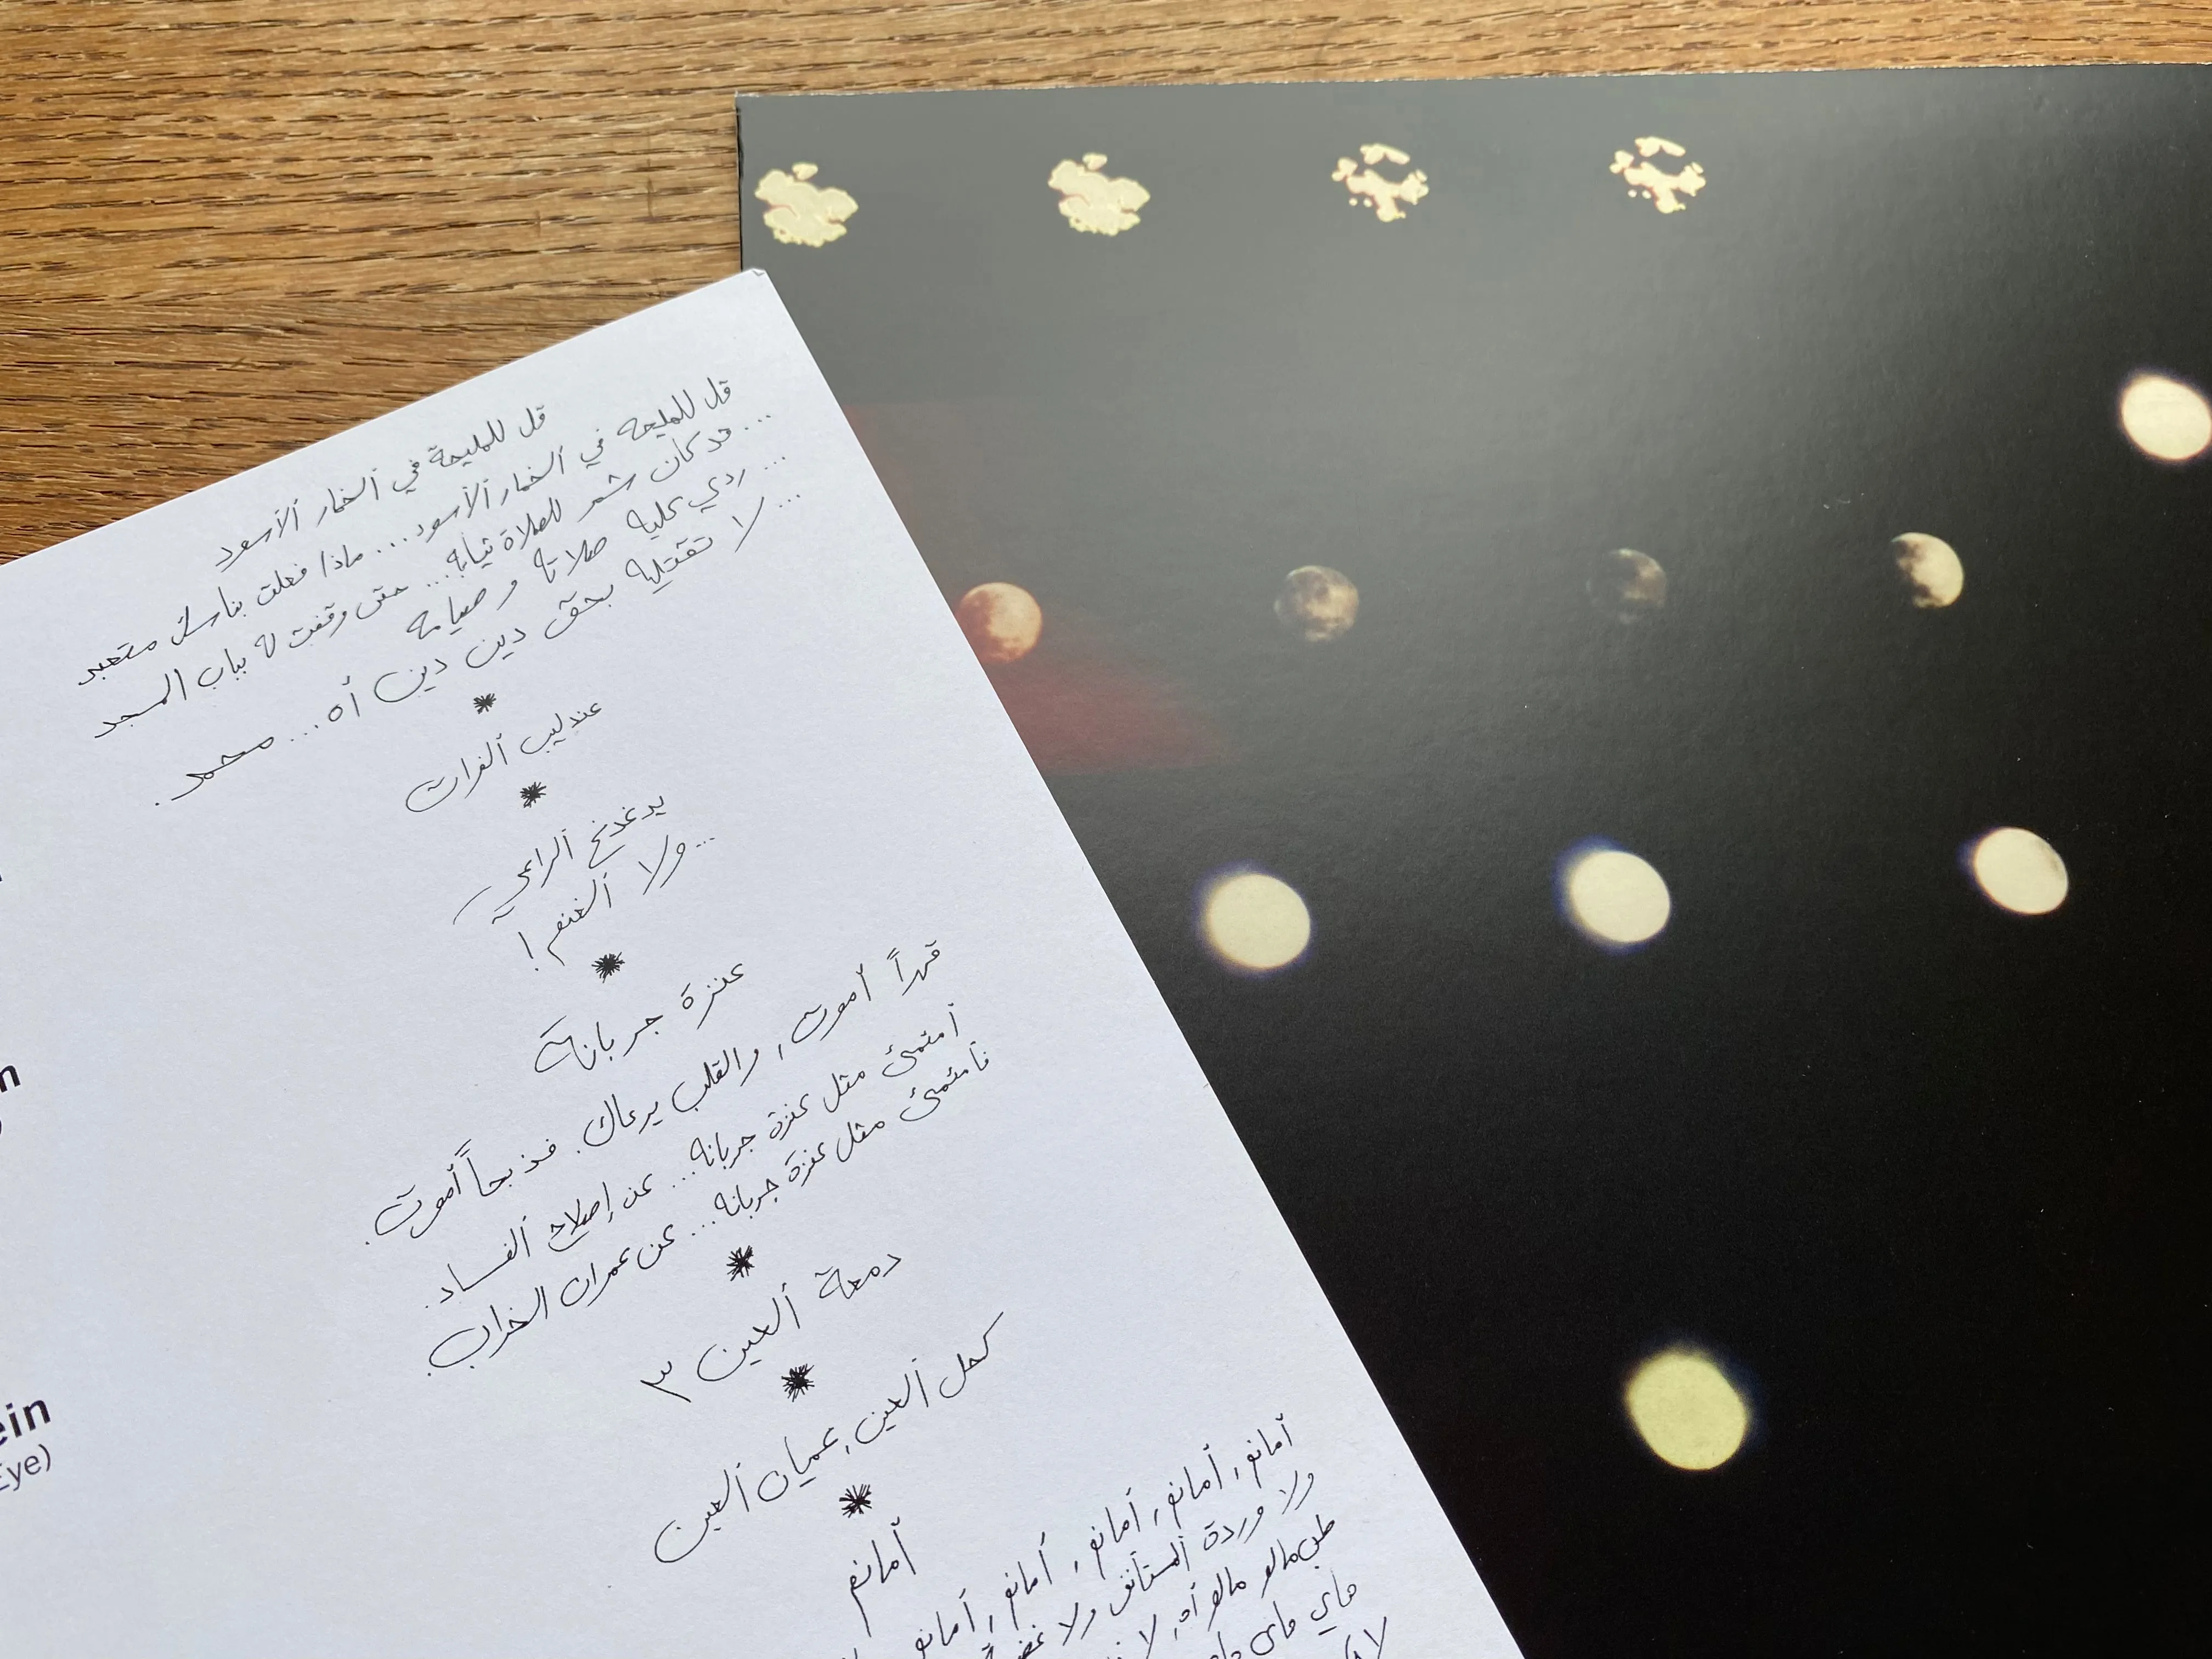 قل للمليحة في ألخمار ألأسود
قل للمليحه في ألخمار ألأسود... ماذا فعلت بناسك متعبد
... قد كان شمر للصلاة ثيابه... حتى وقفت له بباب المسجد
... ردي عليه صلاته وصيامه
... لا تقتليه بحق دين دين أه... محمد.
*
عندليب ألفرات
*
يدغدغ ألراعي
...ولا ألغنم!
*
عنزة جربانة
قهراً أموت, والقلب يرعاك. فذبحاً أموت.
أمتمئ مثل عنزة جربانه... عن إصلاح ألفساد.
فأمتمئ مثل عنزة جربانه... عن عمران الخراب.
*
دمعة ألعين ٣
*
كحل ألعين, عميان ألعين
*
أمانو
أمانو, أمانو, أمانو, أمانو, أمانو
ولا وردة ألبستان ولا
مالو مالو أه, لا
هاي هاي
لا
n
ein
Eye)